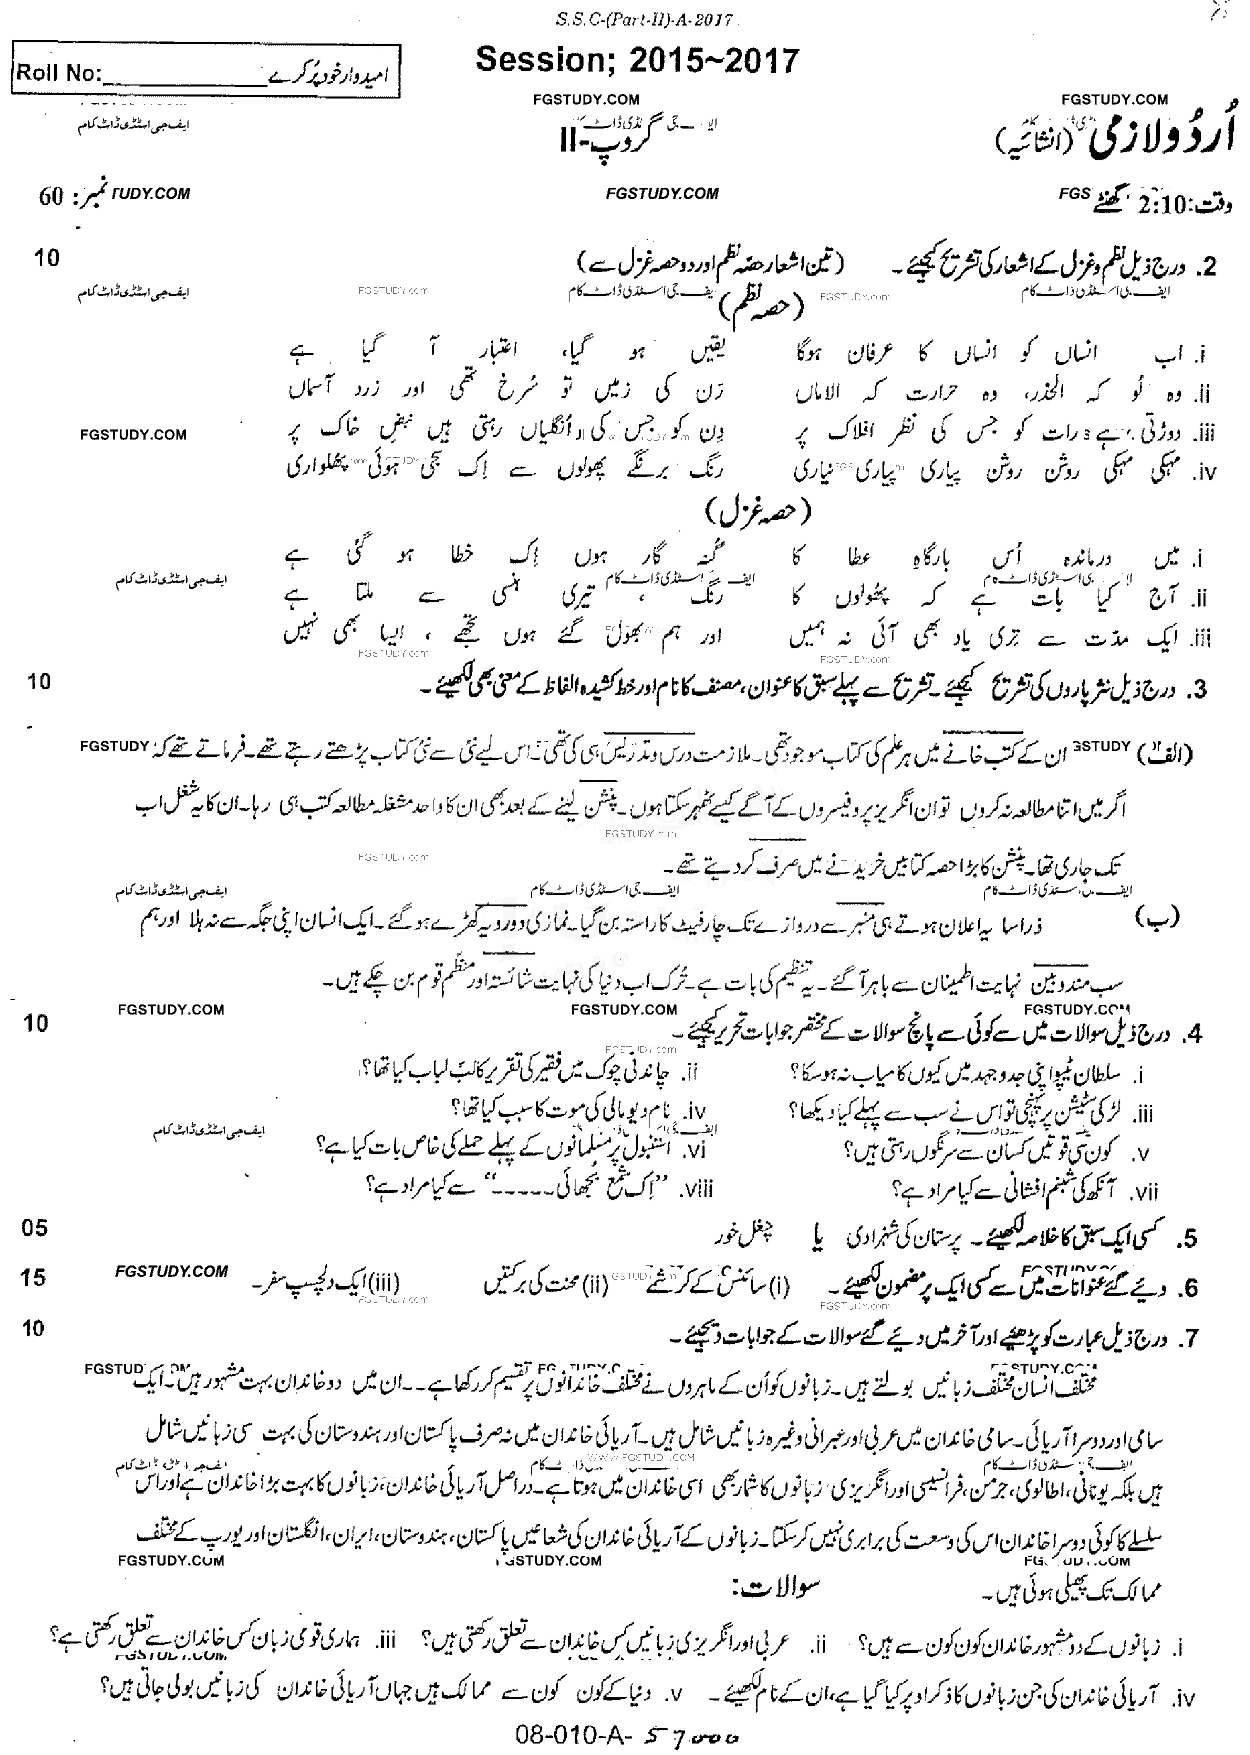 S.S.C-(Part-II)-A-2017
Session; 2015~2017
Roll No:____________ امیدوار خود پُر کرے
FGSTUDY.COM FGSTUDY.COM
اُردُو لازمی (انشائیہ) گروپ-II ایف جی اسٹڈی ڈاٹ کام
وقت: 2:10 گھنٹے FGS FGSTUDY.COM نمبر: 60 TUDY.COM
2. درج ذیل نظم و غزل کے اشعار کی تشریح کیجئے۔ (تین اشعار حصہ نظم اور دو حصہ غزل سے) 10
ایف جی اسٹڈی ڈاٹ کام FGSTUDY.com ایف جی اسٹڈی ڈاٹ کام FGSTUDY.com ایف جی اسٹڈی ڈاٹ کام
(حصہ نظم)
i. اب انساں کو انساں کا عرفان ہوگا یقیں ہو گیا، اعتبار آ گیا ہے
ii. وہ لُو کہ الحذر، وہ حرارت کہ الاماں رَن کی زمیں تو سُرخ تھی اور زرد آسماں
iii. دوڑتی ہے رات کو جس کی نظر افلاک پر دِن کو جس کی اُنگلیاں رہتی ہیں نبضِ خاک پر
FGSTUDY.COM
iv. مہکی مہکی روشن روشن پیاری پیاری نیاری رنگ برنگے پھولوں سے اِک سجی ہوئی پھلواری
(حصہ غزل)
i. میں درماندہ اُس بارگاہِ عطا کا گنہ گار ہوں اِک خطا ہو گئی ہے
ایف جی اسٹڈی ڈاٹ کام ایف جی اسٹڈی ڈاٹ کام
ii. آج کیا بات ہے کہ پھُولوں کا رنگ، تیری ہنسی سے ملتا ہے
iii. ایک مدّت سے تری یاد بھی آئی نہ ہمیں اور ہم بھُول گئے ہوں تجھے، ایسا بھی نہیں
FGSTUDY.com FGSTUDY.com
3. درج ذیل نثر پاروں کی تشریح کیجئے۔ تشریح سے پہلے سبق کا عنوان، مصنف کا نام اور خط کشیدہ الفاظ کے معنی بھی لکھیئے۔ 10
(الف) ان کے کتب خانے میں ہر علم کی کتاب موجود تھی۔ ملازمت درس و تدریس ہی کی تھی۔ اس لیے نئی سے نئی کتاب پڑھتے رہتے تھے۔ فرماتے تھے کہ FGSTUDY
اگر میں اتنا مطالعہ نہ کروں تو ان انگریز پروفیسروں کے آگے کیسے ٹھہر سکتا ہوں۔ پنشن لینے کے بعد بھی ان کا واحد مشغلہ مطالعہ کتب ہی رہا۔ ان کا یہ شغل اب
FGSTUDY.com
تک جاری تھا۔ پنشن کا بڑا حصہ کتابیں خریدنے میں صرف کر دیتے تھے۔ FGSTUDY.com
ایف جی اسٹڈی ڈاٹ کام ایف جی اسٹڈی ڈاٹ کام
(ب) ذرا سا یہ اعلان ہوتے ہی منبر سے دروازے تک چار فیٹ کا راستہ بن گیا۔ نمازی دو رویہ کھڑے ہو گئے۔ ایک انسان اپنی جگہ سے نہ ہلا اور ہم
سب مندوبین نہایت اطمینان سے باہر آ گئے۔ یہ تنظیم کی بات ہے۔ تُرک اب دنیا کی نہایت شائستہ اور منظّم قوم بن چکے ہیں۔
FGSTUDY.COM FGSTUDY.COM FGSTUDY.COM
4. درج ذیل سوالات میں سے کوئی سے پانچ سوالات کے مختصر جوابات تحریر کیجئے۔ 10
FGSTUDY.com
i. سلطان ٹیپو اپنی جدوجہد میں کیوں کامیاب نہ ہو سکا؟ ii. چاندنی چوک میں فقیر کی تقریر کا لب لباب کیا تھا؟
iii. لڑکی سٹیشن پر پہنچی تو اس نے سب سے پہلے کیا دیکھا؟ iv. نام دیو مالی کی موت کا سبب کیا تھا؟
ایف جی اسٹڈی ڈاٹ کام
v. کون سی قوتیں کسان سے سرنگوں رہتی ہیں؟ vi. استنبول پر مسلمانوں کے پہلے حملے کی خاص بات کیا ہے؟
vii. آنکھ کی شبنم افشانی سے کیا مراد ہے؟ viii. "اِک شمع بجھائی -----" سے کیا مراد ہے؟
5. کسی ایک سبق کا خلاصہ لکھیئے۔ پرستان کی شہزادی یا چغل خور 05
6. دیے گئے عنوانات میں سے کسی ایک پر مضمون لکھیئے۔ (i) سائنس کے کرشمے (ii) محنت کی برکتیں (iii) ایک دلچسپ سفر۔ FGSTUDY.COM 15
FGSTUDY.com FGSTUDY.com
7. درج ذیل عبارت کو پڑھیئے اور آخر میں دیے گئے سوالات کے جوابات دیجئے۔ 10
مختلف انسان مختلف زبانیں بولتے ہیں۔ زبانوں کو اُن کے ماہروں نے مختلف خاندانوں پر تقسیم کر رکھا ہے۔۔ ان میں دو خاندان بہت مشہور ہیں۔ ایک
سامی اور دوسرا آریائی۔ سامی خاندان میں عربی اور عبرانی وغیرہ زبانیں شامل ہیں۔ آریائی خاندان میں نہ صرف پاکستان اور ہندوستان کی بہت سی زبانیں شامل
WWW.FGSTUDY.COM
ہیں بلکہ یونانی، اطالوی، جرمن، فرانسیسی اور انگریزی زبانوں کا شمار بھی اسی خاندان میں ہوتا ہے۔ دراصل آریائی خاندان، زبانوں کا بہت بڑا خاندان ہے اور اس
سلسلے کا کوئی دوسرا خاندان اس کی وسعت کی برابری نہیں کر سکتا۔ زبانوں کے آریائی خاندان کی شعاعیں پاکستان، ہندوستان، ایران، انگلستان اور یورپ کے مختلف
FGSTUDY.COM
ممالک تک پھیلی ہوئی ہیں۔ سوالات:
i. زبانوں کے دو مشہور خاندان کون کون سے ہیں؟ ii. عربی اور انگریزی زبانیں کس خاندان سے تعلق رکھتی ہیں؟ iii. ہماری قومی زبان کس خاندان سے تعلق رکھتی ہے؟
iv. آریائی خاندان کی جن زبانوں کا ذکر اوپر کیا گیا ہے، ان کے نام لکھیئے۔ v. دنیا کے کون کون سے ممالک ہیں جہاں آریائی خاندان کی زبانیں بولی جاتی ہیں؟
08-010-A- 57000